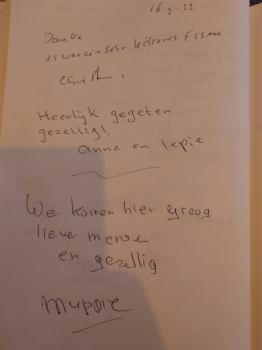 Danke
es war ein sehr leckeres Essen
Heerlijk gegeten
gezellig!
anna en Iepie
We komen hier graag
lieve mense
en gezellig
muppie